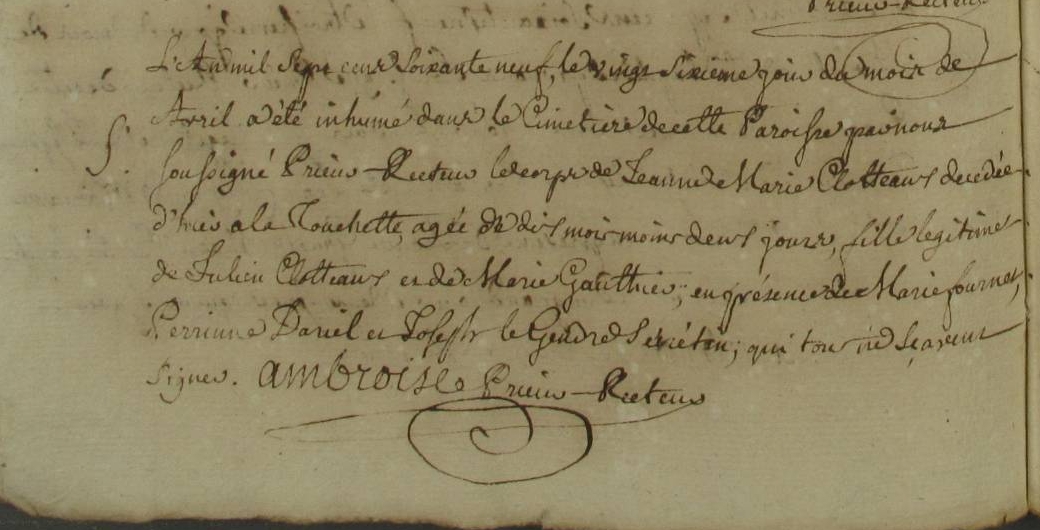 Prieur-Recteur
L'An mil Sept cent Soixante neuf, le vingt Sixieme jour du mois de
Avril a été inhumé dans le Cimetiere de cette Paroisse par nous
S. soussigné Prieur-Recteur le corps de Jeanne Marie Clotteaus decedée
d'hier a la Touchette, agée de dis mois moins deus jours, fille legitime
de Julien Clotteaus et de Marie Gauthier; en présence de Marie fournet,
Perrinne Daniel et Joseph le Gendre Secrétin; qui tous ne Sçavent
Signer. ambroise Prieur-Recteur